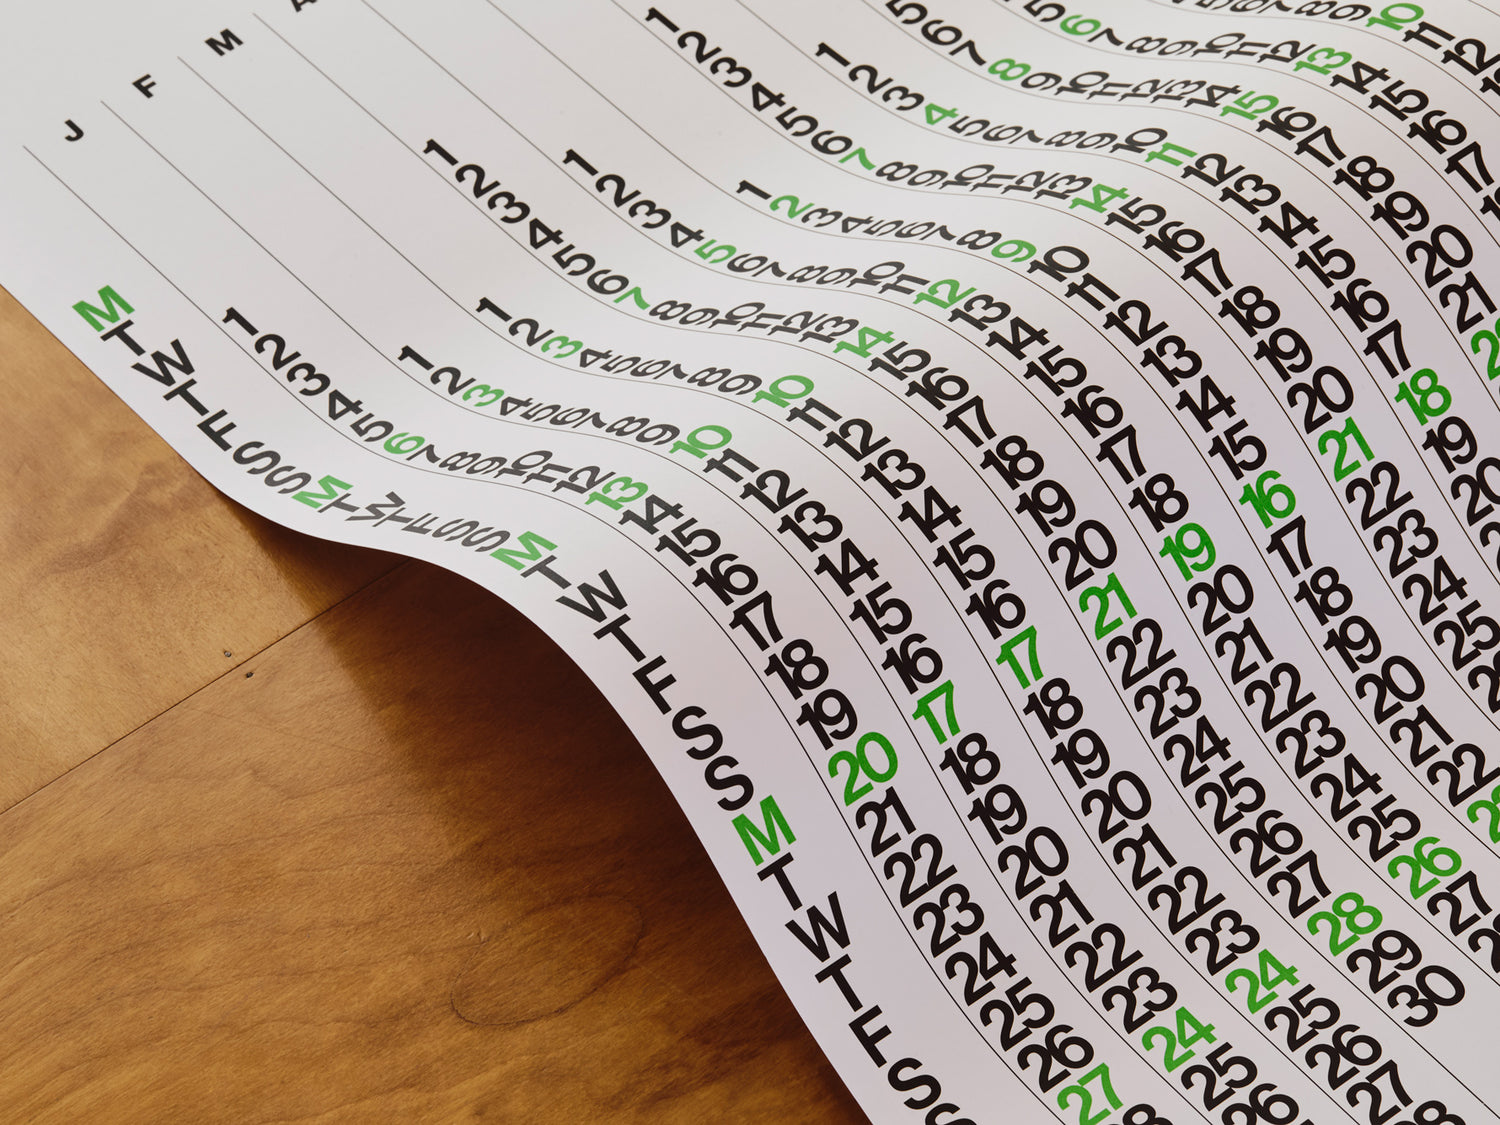 J F M A
M T W T F S S M T W T F S S M T W T F S S M T W T F S
1 2 3 4 5 6 7 8 9 10 11 12 13 14 15 16 17 18 19 20 21 22 23 24 25 26 27
1 2 3 4 5 6 7 8 9 10 11 12 13 14 15 16 17 18 19 20 21 22 23 24 25 26
1 2 3 4 5 6 7 8 9 10 11 12 13 14 15 16 17 18 19 20 21 22 23 24 25 26 27
1 2 3 4 5 6 7 8 9 10 11 12 13 14 15 16 17 18 19 20 21 22 23 24 25 26 27 28 29 30
1 2 3 4 5 6 7 8 9 10 11 12 13 14 15 16 17 18 19 20 21 22 23 24 25 26 27
1 2 3 4 5 6 7 8 9 10 11 12 13 14 15 16 17 18 19 20 21 22
1 2 3 4 5 6 7 8 9 10 11 12 13 14 15 16 17 18 19 20 21 22 23 24 25
1 2 3 4 5 6 7 8 9 10 11 12 13 14 15 16 17 18 19 20
5 6 7 8 9 10 11 12 13 14 15 16 17 18 19 20 21
5 6 7 8 9 10 11 12 13 14 15 16 17
7 8 9 10 11 12